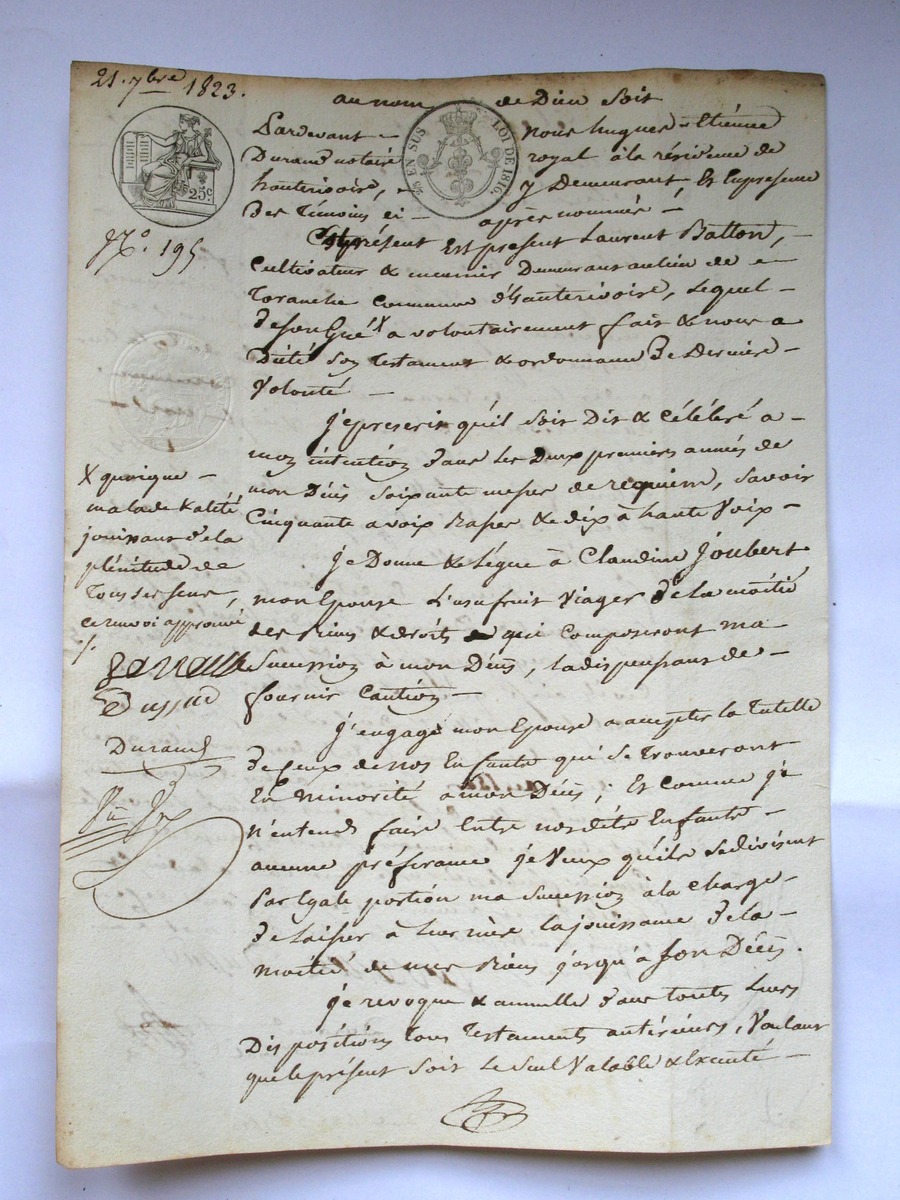 21. 7bre 1823.
au nom de Dieu Soit
Pardevant - nous hugues - Etiénne
Durand notaire royal à la résidence de
hauterivoire, - y Demeurant, Et Enpresence
Des Témoins ci - après nommés, -
Est présent Laurent Batton, -
Cultivateur & meunier Demeurant au lieu de
Toranche Commune d'hauterivoire, Lequel -
De son Gré X a volontairement fait & nous a
Dicté son Testament & ordonnance De Derniere -
Volonté -
Je prescrit qu'il Soit Dit & Célébré a -
mon intention Dans les Deux premieres années de
mon Décès Soixante messes de requiem, Savoir
Cinquante a voix Basse & dix à haute Voix -
Je Donne & Légue à Claudine Joubert
mon Epouse L'usufruit Viager De la moitié
des Biens & droits qui Composeront ma -
Succession à mon Décès, la dispensant de -
fournir Caution -
J'engage mon Epouse a accepter la Tutelle
De Ceux de nos Enfants qui Se Trouveront
En minorité a mon Décès ; Et Comme je
n'entends faire Entre nosdits Enfants -
aucune préférance je Veux qu'ils Se divisent
Par Egale portion ma Succession à la Charge -
De Laisser à Leur mère la jouissance De la -
moitié de mes Biens jusqu'à Son Décès.
Je revoque & annulle Dans toutes Leurs
Dispositions tous Testaments antérieurs, Voulant
que le présent Soit Le Seul Valable & Executé -
25 c.
25 EN SUS
LOI DE 1816
No. 195
X quoique -
malade & alité
jouissant De la
plénitude de
Tous ses sens,
ce renvoi approuvé
Dussud
Durand